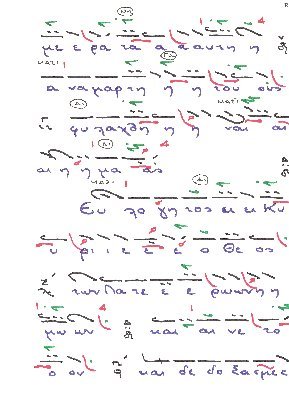 με ε ρα τα α α αυτη η
α να μαρτη η η του ους
φυ λαχθη η η ναι αι
αι η η μα ας
Ευ λο γη τος ει ει Κυ
υ ρι ι ε ε ε ο Θε ος
των Πα τε ε ε ρωων η η
μω ων και αι νε το
ο ον και δε δο ξασμεε